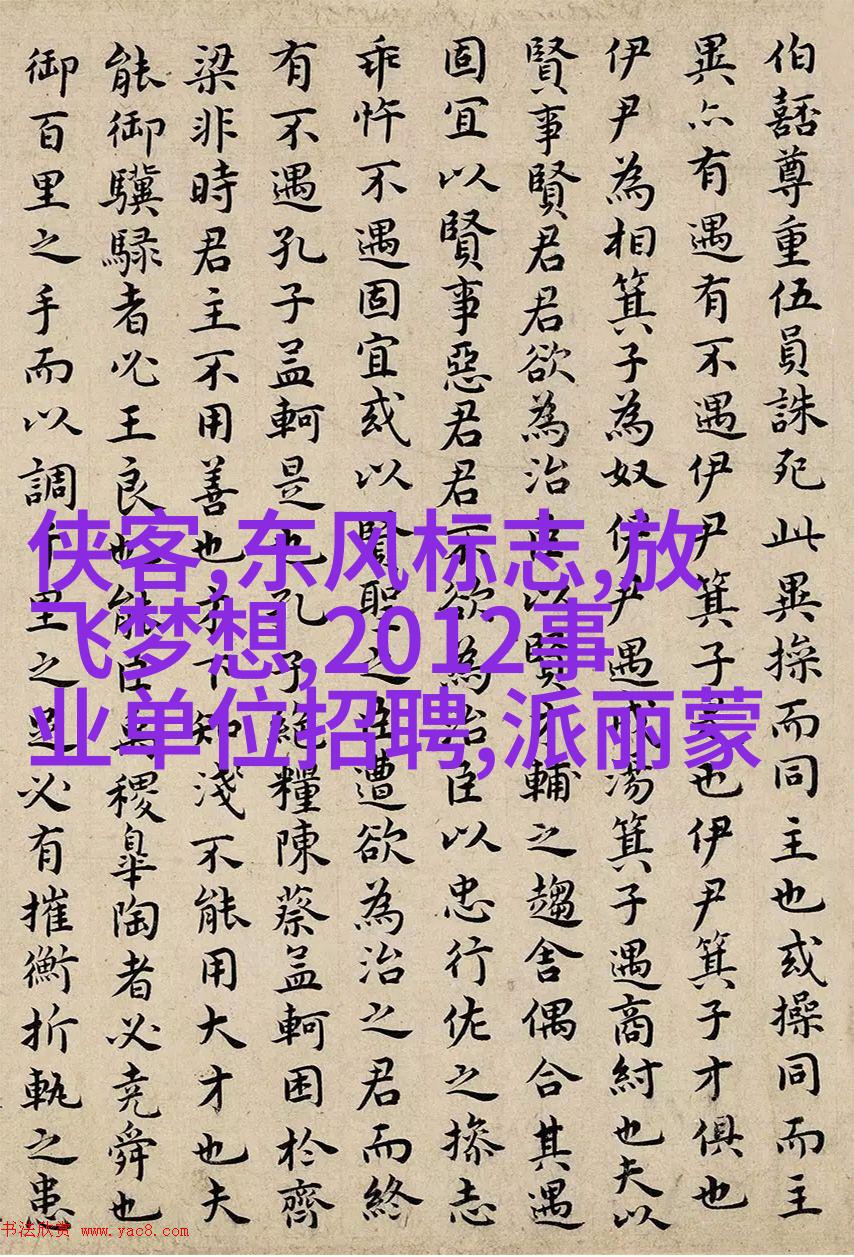 伯嚭尊重伍員誅死此異操而同主也或操同而主
異亦有遇有不遇伊尹箕子是也伊尹箕子才俱也
伊尹為相箕子為奴伊尹遇成湯箕子遇商紂也夫以
賢事賢君君欲為治臣以賢才輔之趨舍偶合其遇
固宜以賢事惡君君不欲為治臣以忠行佐之操志
乖忤不遇固宜或以賢聖之臣遭欲為治之君而終
有不遇孔子孟軻是也孔子絕糧陳蔡孟軻困於齊
梁非時君主不用善也才下知淺不能用大才也夫
能御驥騄者必王良也能臣禹稷皋陶者必堯舜也
御百里之手而以調千里之足必有摧衡折軛之患
侠客,东风标志,放
飞梦想,2012事
业单位招聘,派丽蒙
书法欣赏 www.yac8.com